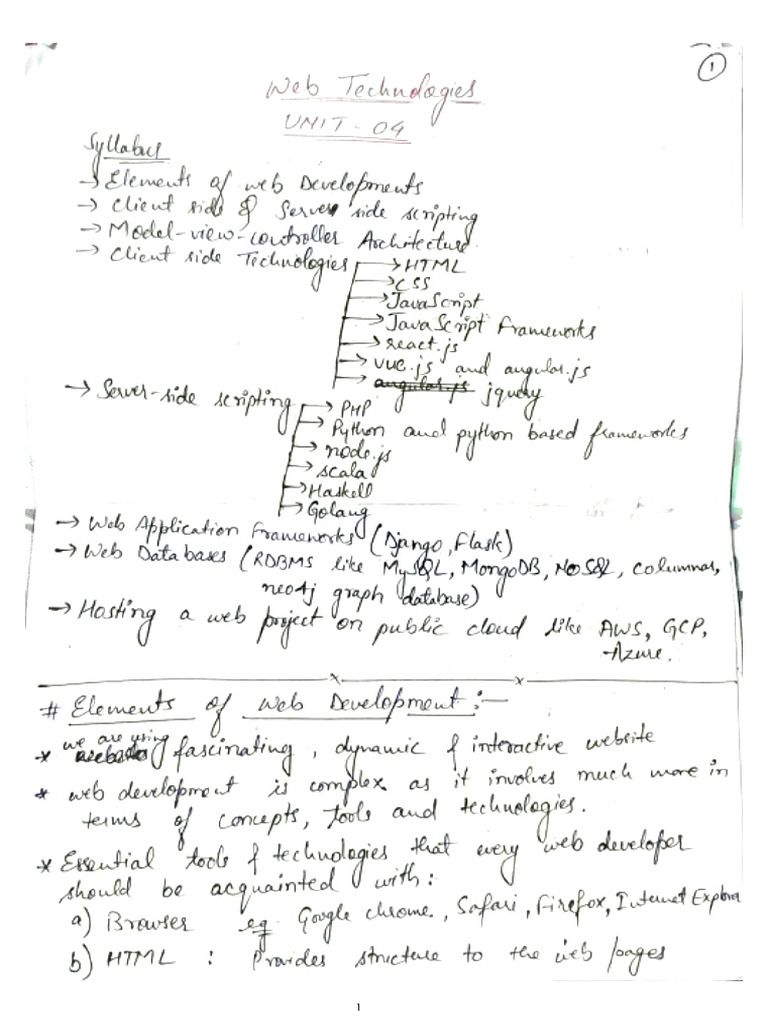 1
Web Technologies
UNIT-04
Syllabus
→ Elements of web Developments
→ Client side & Server side scripting
→ Model-view-controller Architecture
→ Client side Technologies → HTML
→ CSS
→ JavaScript
→ JavaScript Frameworks
→ react.js
→ vue.js and angular.js
→ angular.js jquery
→ Server-side scripting → PHP
→ Python and python based frameworks
→ node.js
→ scala
→ Haskell
→ Golang
→ Web Application Frameworks (Django, Flask)
→ Web Databases (RDBMS like MySQL, MongoDB, NoSQL, columnar,
neo4j graph database)
→ Hosting a web project on public cloud like AWS, GCP,
Azure.
# Elements of Web Development :-
* we are using fascinating, dynamic & interactive website
* web development is complex as it involves much more in
terms of concepts, tools and technologies.
* Essential tools & technologies that every web developer
should be acquainted with:
a) Browser eg Google chrome, Safari, Firefox, Internet Explorer
b) HTML : Provides structure to the web pages
1